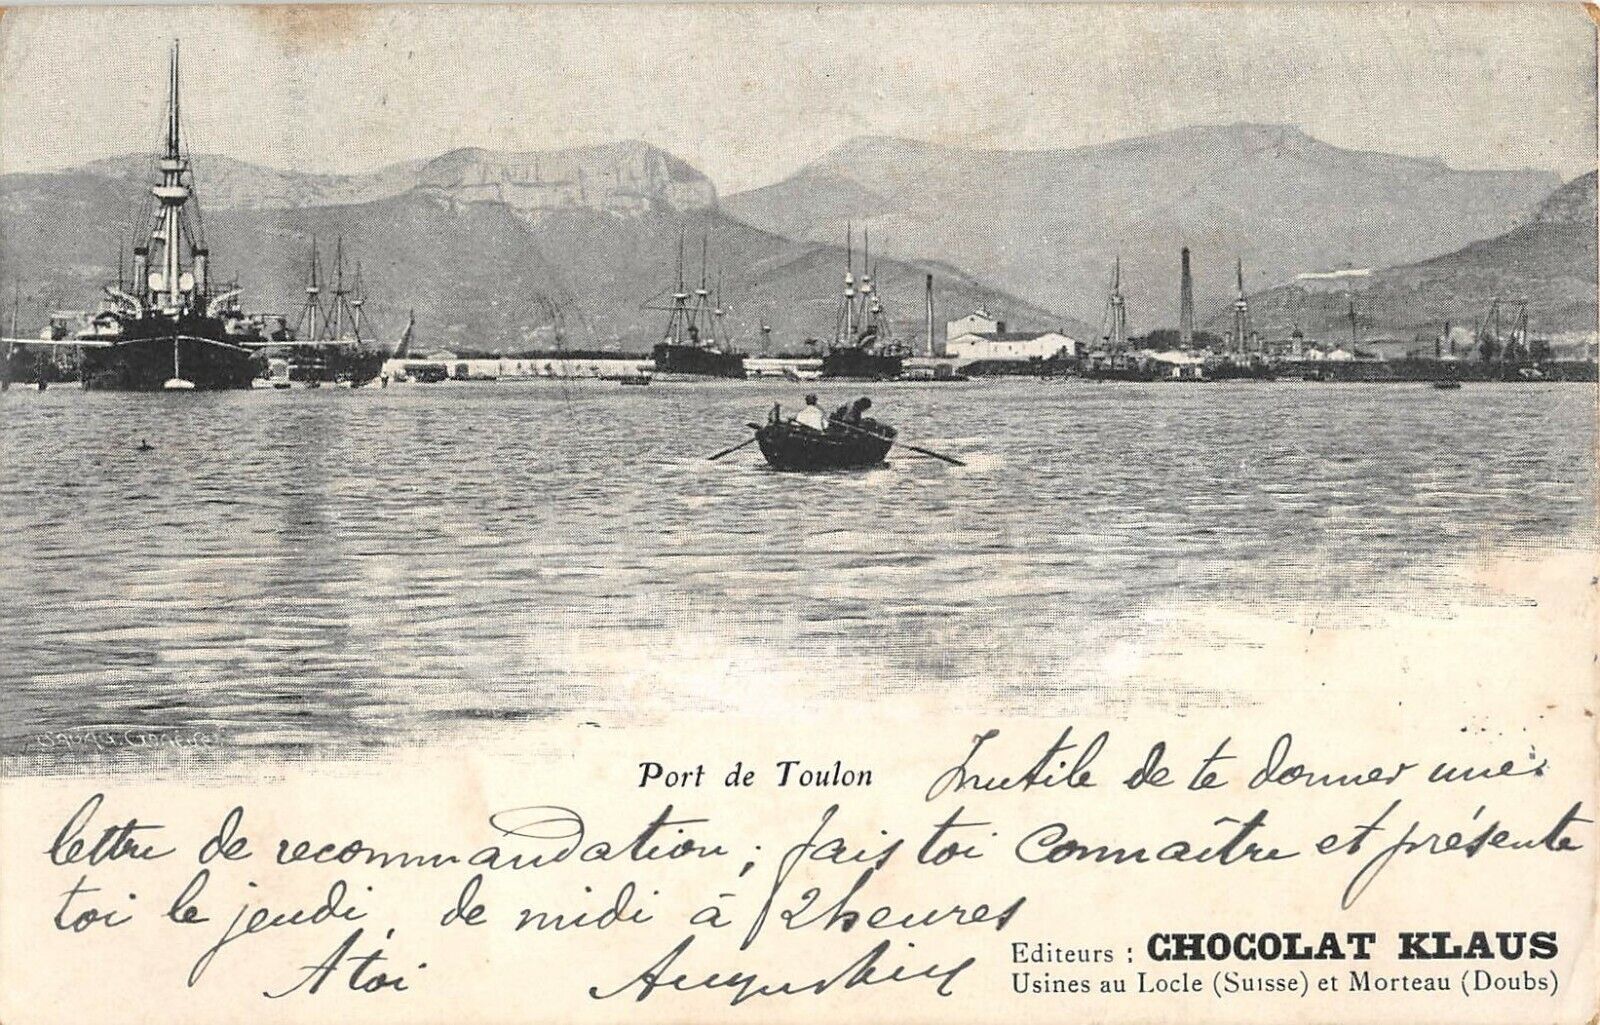 Port de Toulon
Inutile de te donner une
lettre de recommandation ; fais toi connaître et présente
toi le jeudi, de midi à 2 heures
A toi
Editeurs : CHOCOLAT KLAUS
Usines au Locle (Suisse) et Morteau (Doubs)